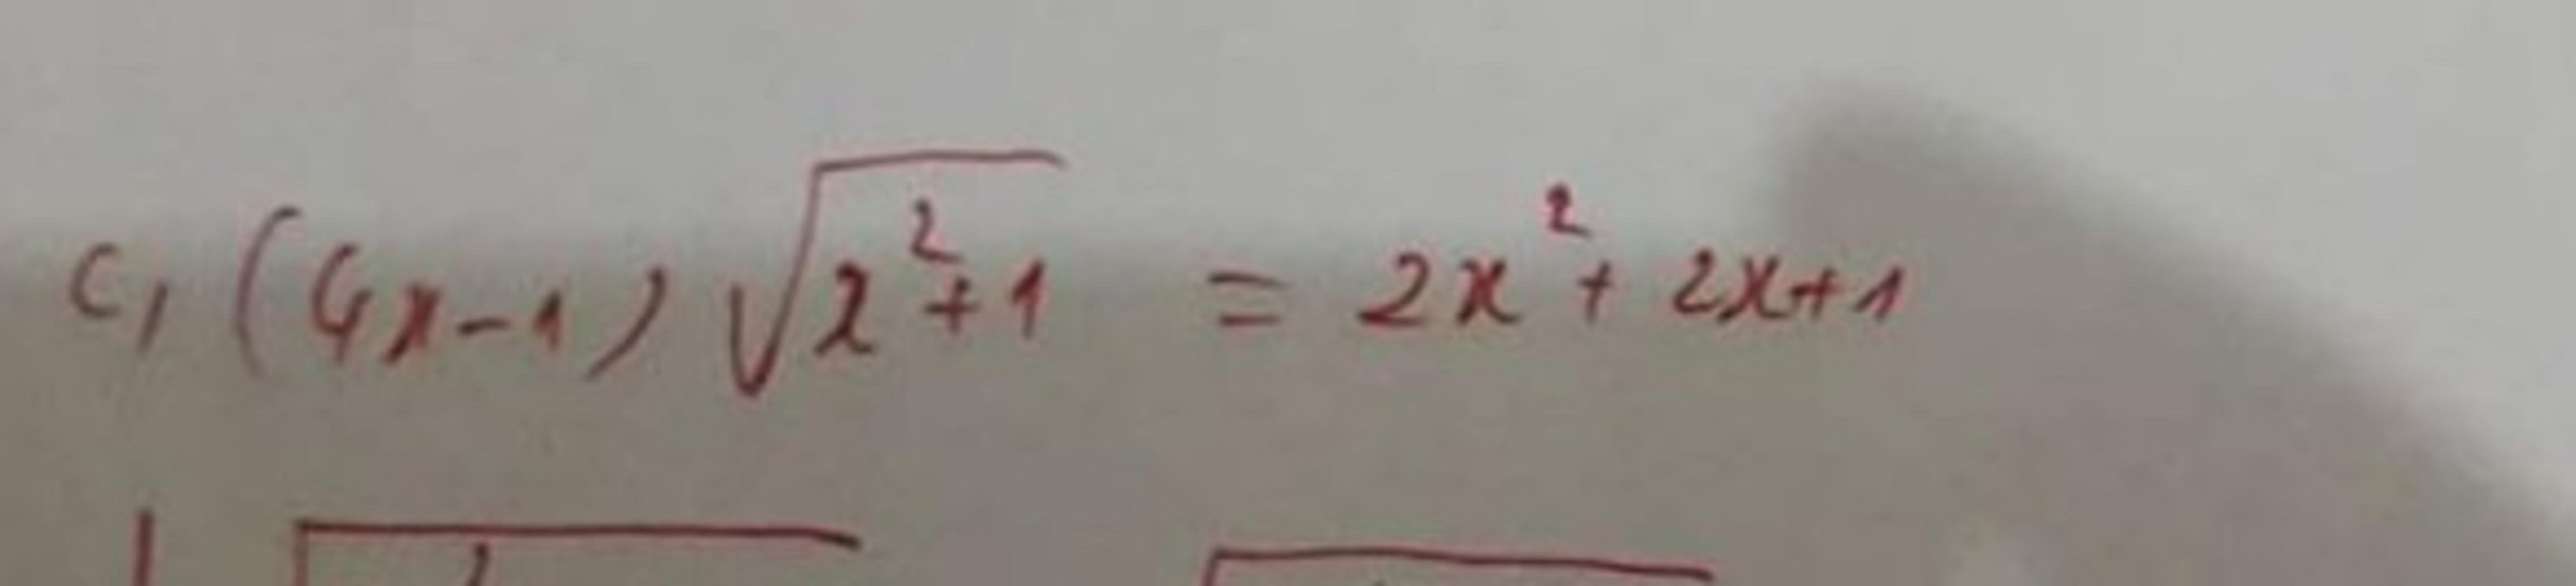 c, (4x-1) √(x²+1) = 2x² + 2x+1